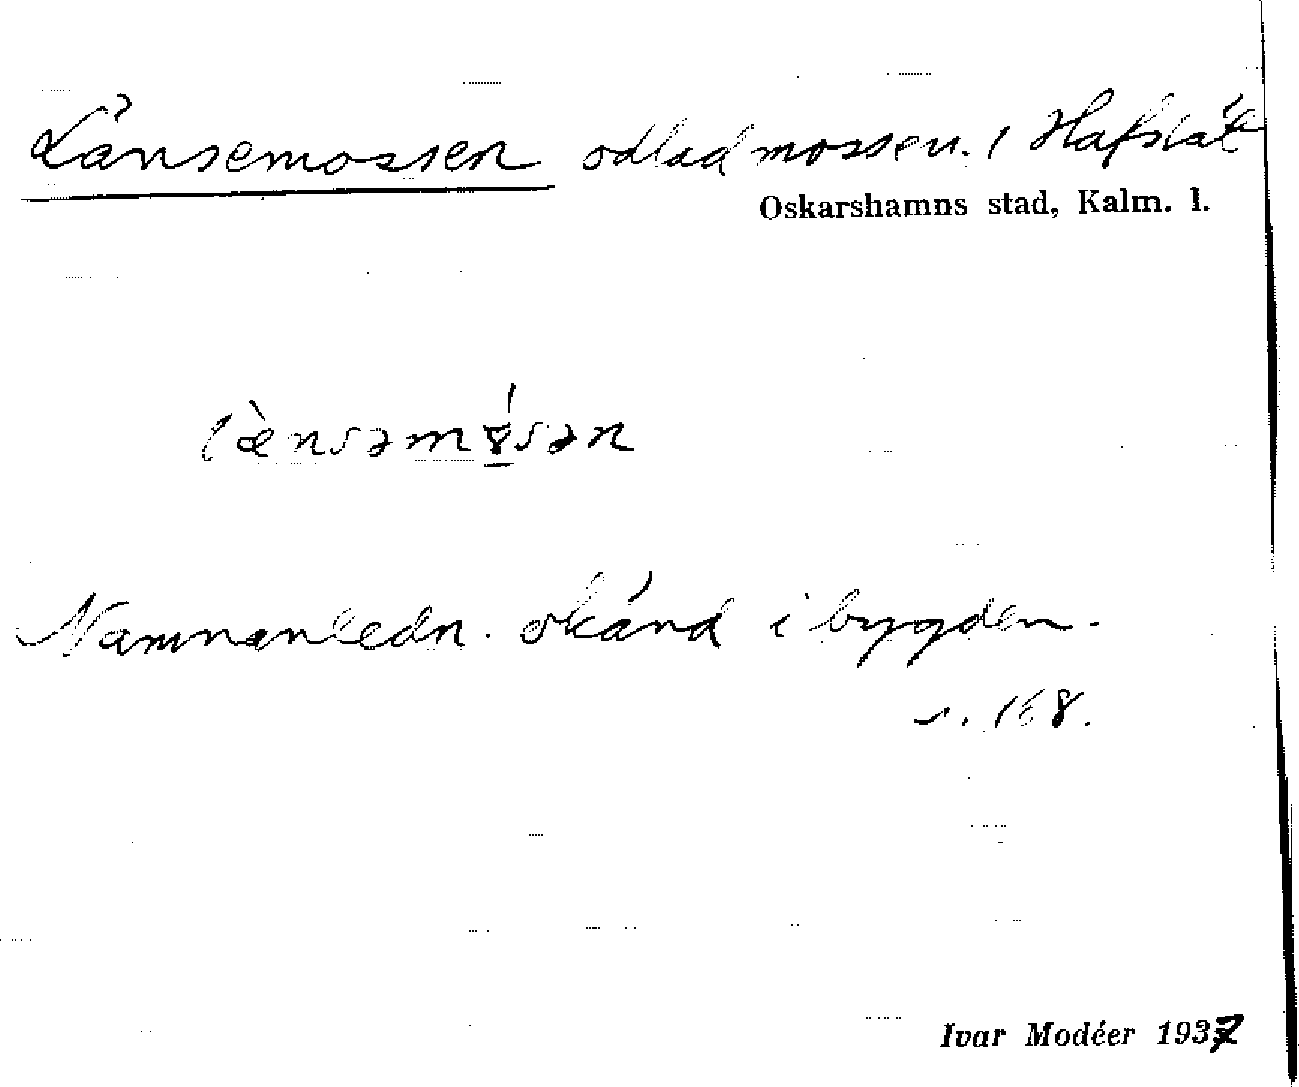 Länsemossen odlad mossen. / Hafslätt
Oskarshamns stad, Kalm. l.
lænsəmɤsən
Namnanledn. okänd i bygden.
s. 168.
Ivar Modéer 1937